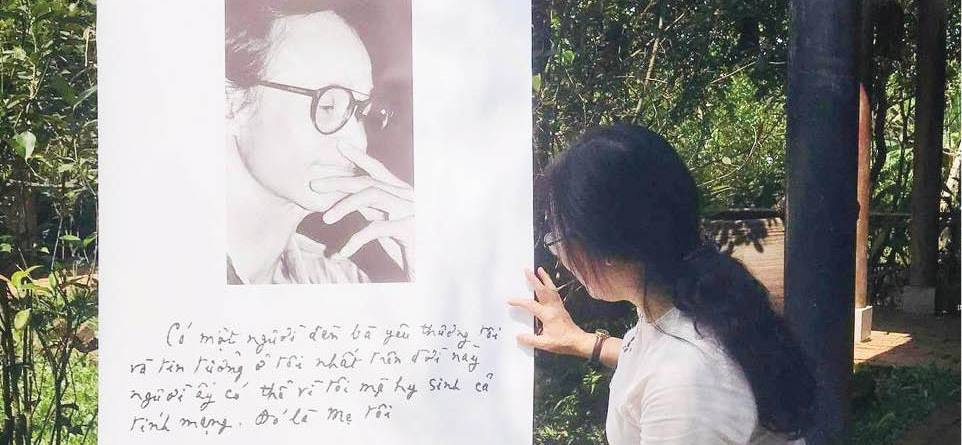 Có một người đàn bà yêu thương tôi
và tin tưởng ở tôi nhất trên đời này
người ấy có thể vì tôi mà hy sinh cả
tính mạng. Đó là Mẹ tôi